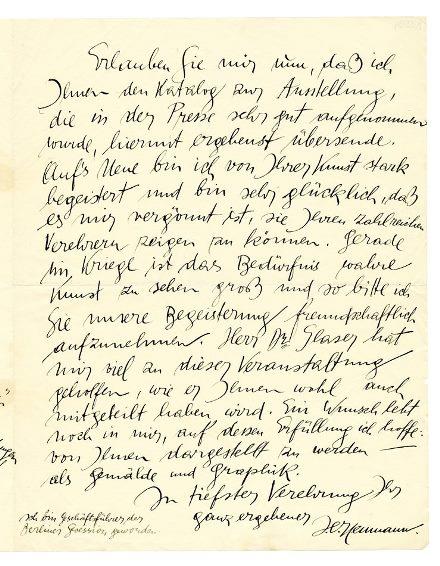 Erlauben Sie mir nun, daß ich
Ihnen den Katalog zur Ausstellung,
die in der Presse sehr gut aufgenommen
wurde, hiermit ergebenst übersende.
Auf's Neue bin ich von Ihrer Kunst stark
begeistert und bin sehr glücklich, daß
es mir vergönnt ist, sie Ihren zahlreichen
Verehrern zeigen zu können. Gerade
im Kriege ist das Bedürfnis wahre
Kunst zu sehen groß und so bitte ich
Sie unsere Begeisterung freundschaftlich
aufzunehmen. Herr Dr. Glaser hat
mir viel zu dieser Veranstaltung
geholfen, wie er Ihnen wohl auch
mitgeteilt haben wird. Ein Wunsch lebt
noch in mir, auf dessen Erfüllung ich hoffe:
von Ihnen dargestellt zu werden —
als Gemälde und Graphik.
In tiefster Verehrung Ihr
ganz ergebener
J.B. Neumann.
Ich bin Geschäftsführer der
Berliner Secession geworden.